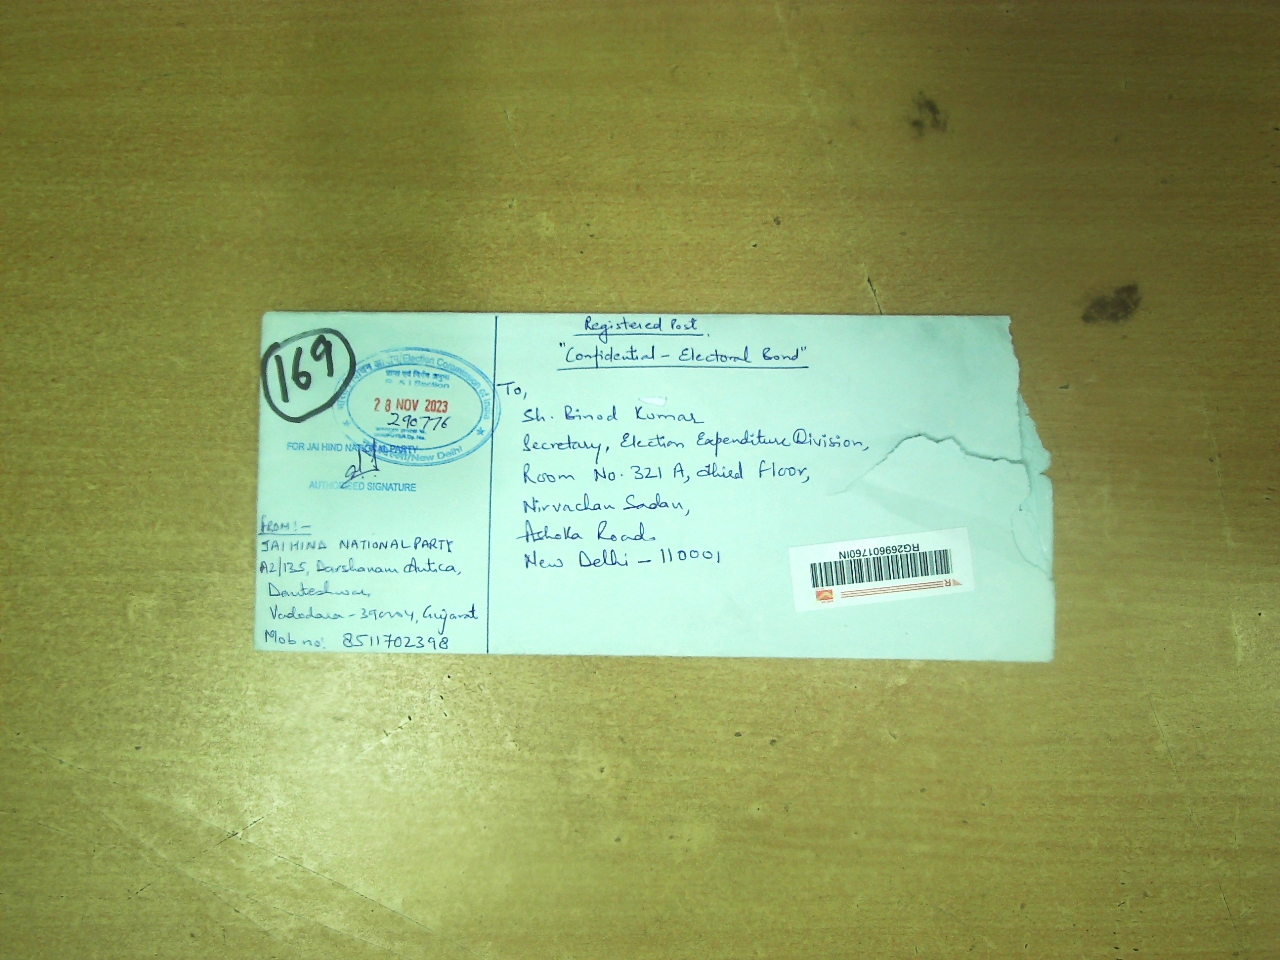 169
Election Commission of India
R & I Section
28 NOV 2023
290776
New Delhi
FOR JAI HIND NATIONAL PARTY
AUTHORISED SIGNATURE
FROM:-
JAI HIND NATIONAL PARTY
A2/135, Darshanam Antica,
Danteshwar,
Vadodara - 390004, Gujarat
Mob no: 8511702398
Registered Post
"Confidential - Electoral Bond"
To,
Sh. Binod Kumar
Secretary, Election Expenditure Division,
Room No. 321 A, third floor,
Nirvachan Sadan,
Ashoka Road,
New Delhi - 110001
RG269601760IN
R